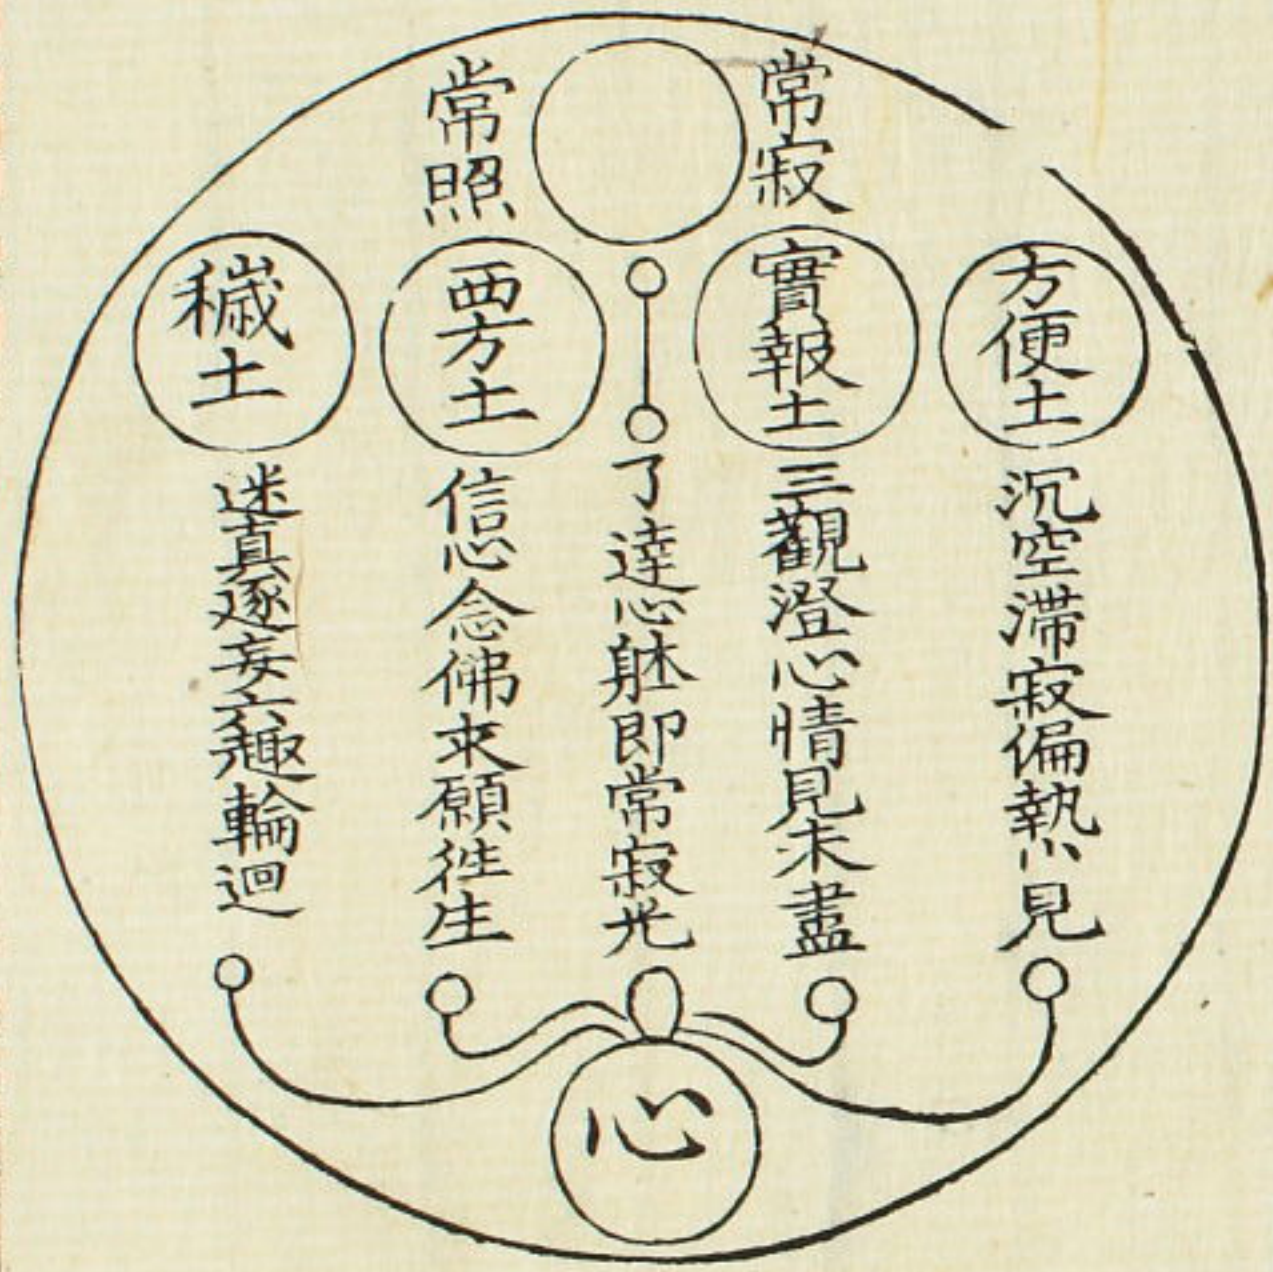 常寂
常照
方便土
沉空滯寂偏熱見
實報土
三觀澄心情見未盡
了達心躰即常寂光
西方土
信心念佛求願徃生
穢土
迷真逐妄六趣輪迴
心